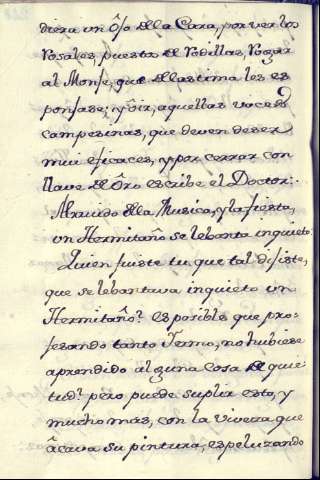 diera un ôjo dela Cara, por ver los
Rosales, puestos de Rodillas, Rogar
al Monje, que delastima les es
ponjase; y ôir, aquellas voces
campesinas, que deven de ser
mui eficaces, y por cerrar con
llave de Ôro escribe el Doctor:
Alruido dela Musica, y la fiesta,
un Hermitaño se lebanta inquieto.
Quien fuiste tu, que tal dijiste,
que se lebantava inquieto un
Hermitaño? es posible que pro-
fesando tanto Yermo, no hubiese
aprendido alguna cosa de quie-
tud? pero puede suplir esto, y
mucho mas, con la viveza que
âcava su pintura, espeluzando